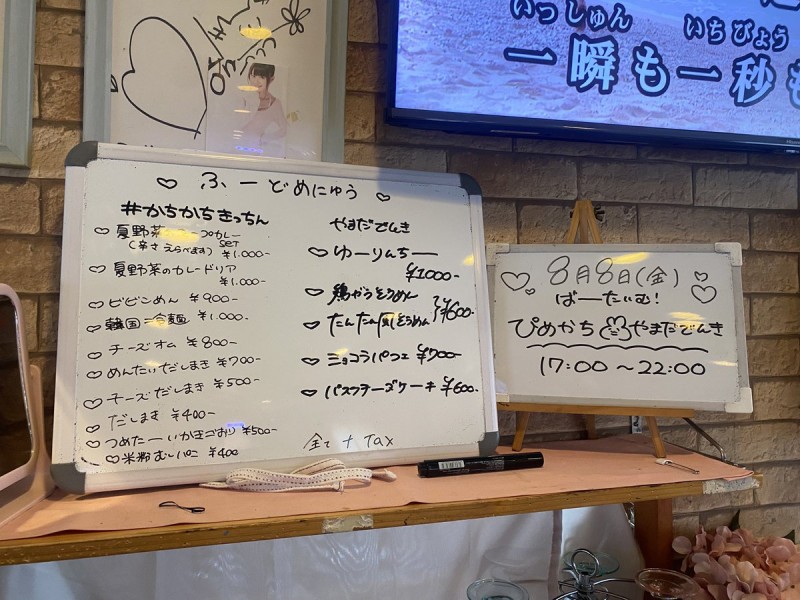 いっしゅん いちびょう
一瞬も一秒も
ふーどめにゅう
#かちかちきっちん
夏野菜 プカレー
(辛さえらべます) SET ¥1.000-
夏野菜のカレードリア
¥1.000-
ビビンめん ¥900-
韓国冷麺 ¥1.000-
チーズオム ¥800-
めんたいだしまき ¥700-
チーズだしまき ¥500-
だしまき ¥400-
つめたーいかきごおり ¥500-
米粉むしパン ¥400
やまだでんき
ゆーりんちー
¥1000-
鶏がらそうめん
たんたん風そうめん
¥600-
ショコラパフェ ¥700-
バスクチーズケーキ ¥600-
全て+Tax
8月8日(金)
ばーたいむ!
ぴめかち やまだでんき
17:00〜22:00